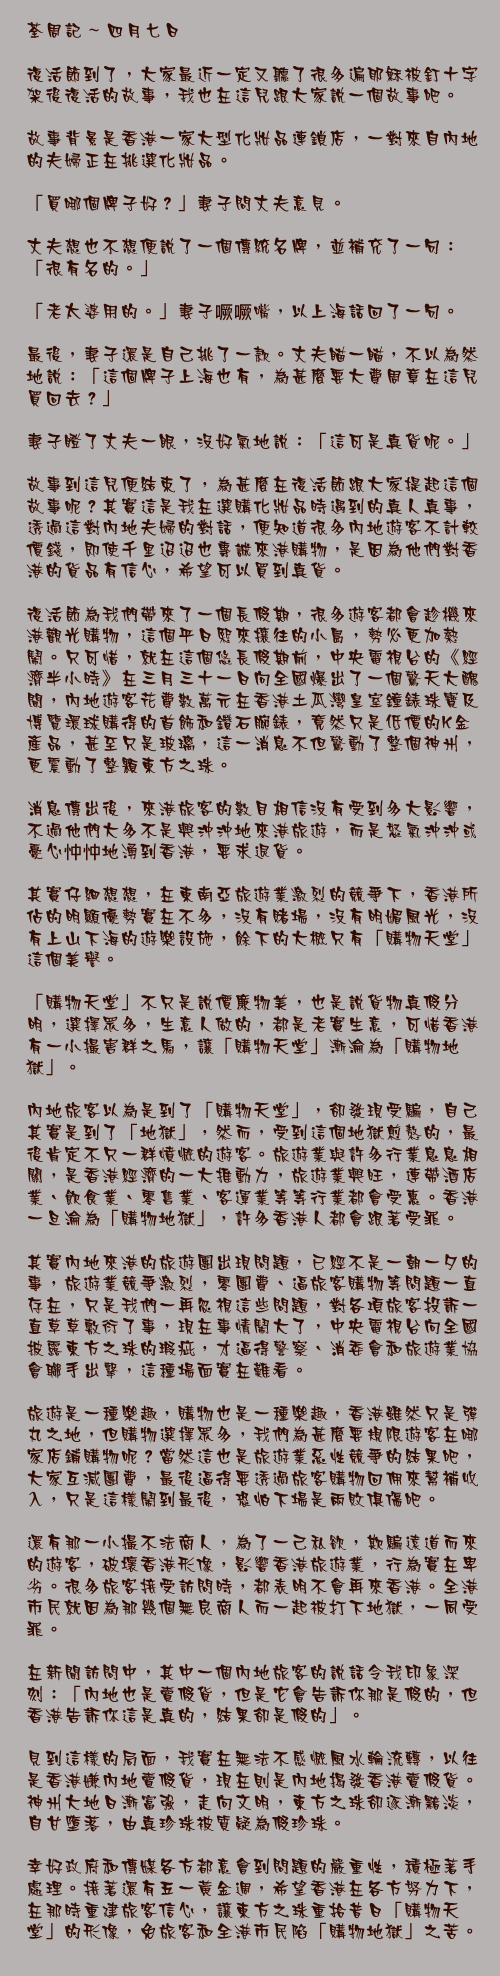 荃周記～四月七日
復活節到了，大家最近一定又聽了很多遍耶穌被釘十字
架後復活的故事，我也在這兒跟大家說一個故事吧。
故事背景是香港一家大型化妝品連鎖店，一對來自內地
的夫婦正在挑選化妝品。
「買哪個牌子好？」妻子問丈夫意見。
丈夫想也不想便說了一個傳統名牌，並補充了一句：
「很有名的。」
「老太婆用的。」妻子噘噘嘴，以上海話回了一句。
最後，妻子還是自己挑了一款。丈夫瞄一瞄，不以為然
地說：「這個牌子上海也有，為甚麼要大費周章在這兒
買回去？」
妻子瞪了丈夫一眼，沒好氣地說：「這可是真貨呢。」
故事到這兒便結束了，為甚麼在復活節跟大家提起這個
故事呢？其實這是我在選購化妝品時遇到的真人真事，
透過這對內地夫婦的對話，便知道很多內地遊客不計較
價錢，即使千里迢迢也專誠來港購物，是因為他們對香
港的貨品有信心，希望可以買到真貨。
復活節為我們帶來了一個長假期，很多遊客都會趁機來
港觀光購物，這個平日熙來攘往的小島，勢必更加熱
鬧。只可惜，就在這個悠長假期前，中央電視台的《經
濟半小時》在三月三十一日向全國爆出了一個驚天大醜
聞，內地遊客花費數萬元在香港土瓜灣皇室鐘錶珠寶及
博覽環球購得的首飾和鑽石腕錶，竟然只是低價的K金
產品，甚至只是玻璃，這一消息不但驚動了整個神州，
更震動了整顆東方之珠。
消息傳出後，來港旅客的數目相信沒有受到多大影響，
不過他們大多不是興沖沖地來港旅遊，而是怒氣沖沖或
憂心忡忡地湧到香港，要求退貨。
其實仔細想想，在東南亞旅遊業激烈的競爭下，香港所
佔的明顯優勢實在不多，沒有賭場，沒有明媚風光，沒
有上山下海的遊樂設施，餘下的大概只有「購物天堂」
這個美譽。
「購物天堂」不只是說價廉物美，也是說貨物真假分
明，選擇眾多，生意人做的，都是老實生意，可惜香港
有一小撮害群之馬，讓「購物天堂」漸淪為「購物地
獄」。
內地旅客以為是到了「購物天堂」，卻發現受騙，自己
其實是到了「地獄」，然而，受到這個地獄煎熬的，最
後肯定不只一群憤慨的遊客。旅遊業與許多行業息息相
關，是香港經濟的一大推動力，旅遊業興旺，連帶酒店
業、飲食業、零售業、客運業等等行業都會受惠。香港
一旦淪為「購物地獄」，許多香港人都會跟著受罪。
其實內地來港的旅遊團出現問題，已經不是一朝一夕的
事，旅遊業競爭激烈，零團費、逼旅客購物等問題一直
存在，只是我們一再忽視這些問題，對各項旅客投訴一
直草草敷衍了事，現在事情鬧大了，中央電視台向全國
披露東方之珠的瑕疵，才逼得警察、消委會和旅遊業協
會聯手出擊，這種場面實在難看。
旅遊是一種樂趣，購物也是一種樂趣，香港雖然只是彈
丸之地，但購物選擇眾多，我們為甚麼要規限遊客在哪
家店鋪購物呢？當然這也是旅遊業惡性競爭的結果吧，
大家互減團費，最後逼得要透過旅客購物回佣來幫補收
入，只是這樣鬧到最後，恐怕下場是兩敗俱傷吧。
還有那一小撮不法商人，為了一己私欲，欺騙遠道而來
的遊客，破壞香港形像，影響香港旅遊業，行為實在卑
劣。很多旅客接受訪問時，都表明不會再來香港。全港
市民就因為那幾個無良商人而一起被打下地獄，一同受
罪。
在新聞訪問中，其中一個內地旅客的說話令我印象深
刻：「內地也是賣假貨，但是它會告訴你那是假的，但
香港告訴你這是真的，結果卻是假的」。
見到這樣的局面，我實在無法不感慨風水輪流轉，以往
是香港嫌內地賣假貨，現在則是內地揭發香港賣假貨。
神州大地日漸富強，走向文明，東方之珠卻逐漸黯淡，
自甘墮落，由真珍珠被質疑為假珍珠。
幸好政府和傳媒各方都意會到問題的嚴重性，積極著手
處理。接著還有五一黃金週，希望香港在各方努力下，
在那時重建旅客信心，讓東方之珠重拾昔日「購物天
堂」的形像，免旅客和全港市民陷「購物地獄」之苦。